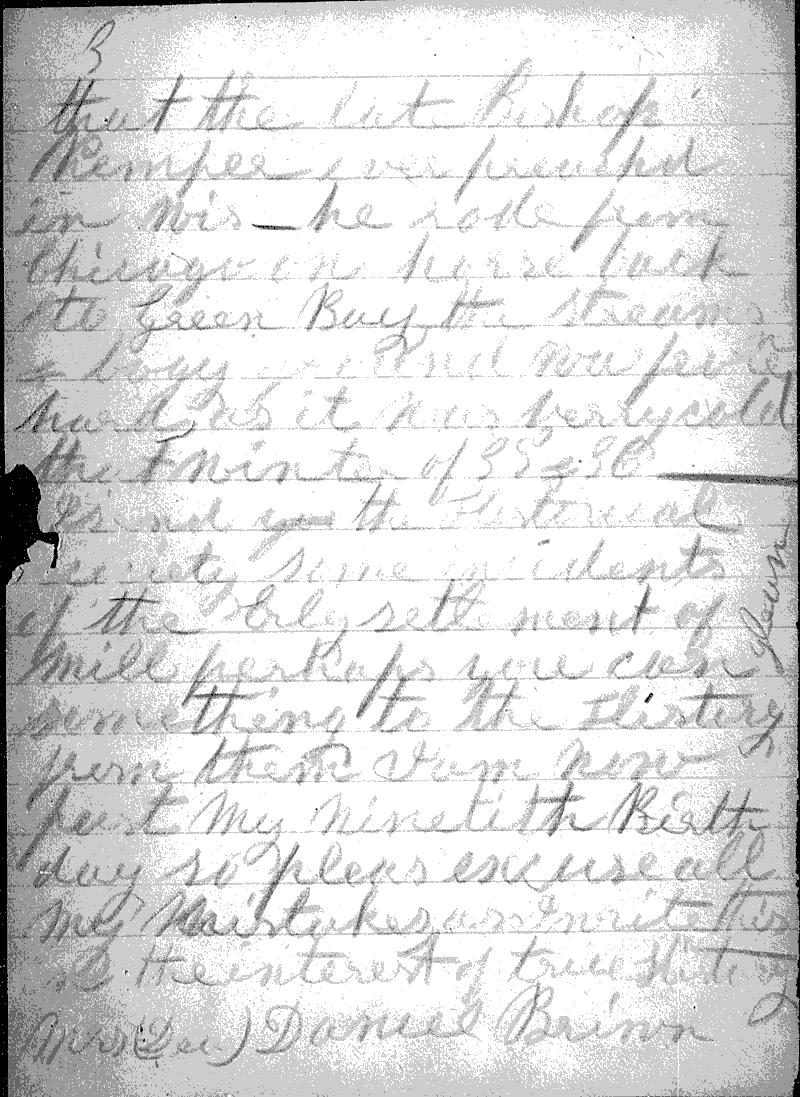 3
that the late Bishop
Kemper ever preachd
in Wis — he rode from
Chicago on horse back
to Green Bay the streams
& boggs and now froze
hard as it was verry cold
that winter of 35 & 36 —
I send you the Historical
Society some incidents
of the Erly setlment of
Mill perhaps you can glean
something to the History
from them I am now
past my ninetith Birth
day so pleas excuse all
my Mistakes as I write this
in the interest of true History
Mrs (Dea) Daniel Brown